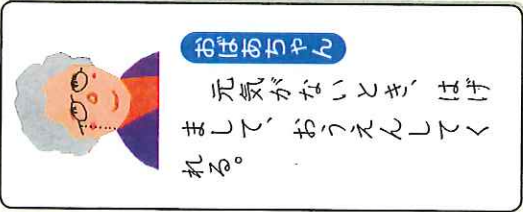 おばあちゃん
元気がないとき、はげ
まして、おうえんしてく
れる。